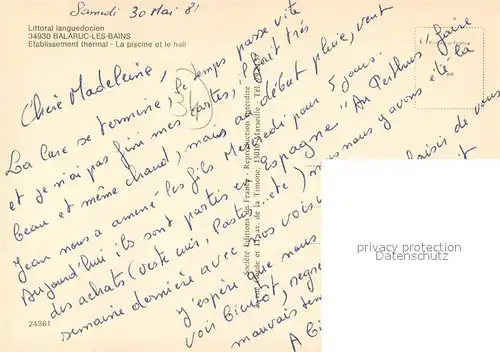 Samedi 30 Mai 81
Littoral languedocien
34930 BALARUC-LES-BAINS
Etablissement thermal - La piscine et le hall
Chère Madeleine,
La cure se termine, le temps passe vite
et je n'ai pas fini mes cartes, était très
beau et même chaud, mais au début pluie, vent
Jean nous a amené les fils Mercredi pour 5 jours.
Aujourd'hui ils sont partis en Espagne "Au Perthus" faire
des achats (veste cuir, Pastis, etc) nous y avons été la
semaine dernière avec nos vois
J'espère que nous plaisir de vous
voir bientôt,
mauvais
A bi
Société Editions de France - Reproduction interdite
13010 Marseille - Tél.
34
24361
privacy protection